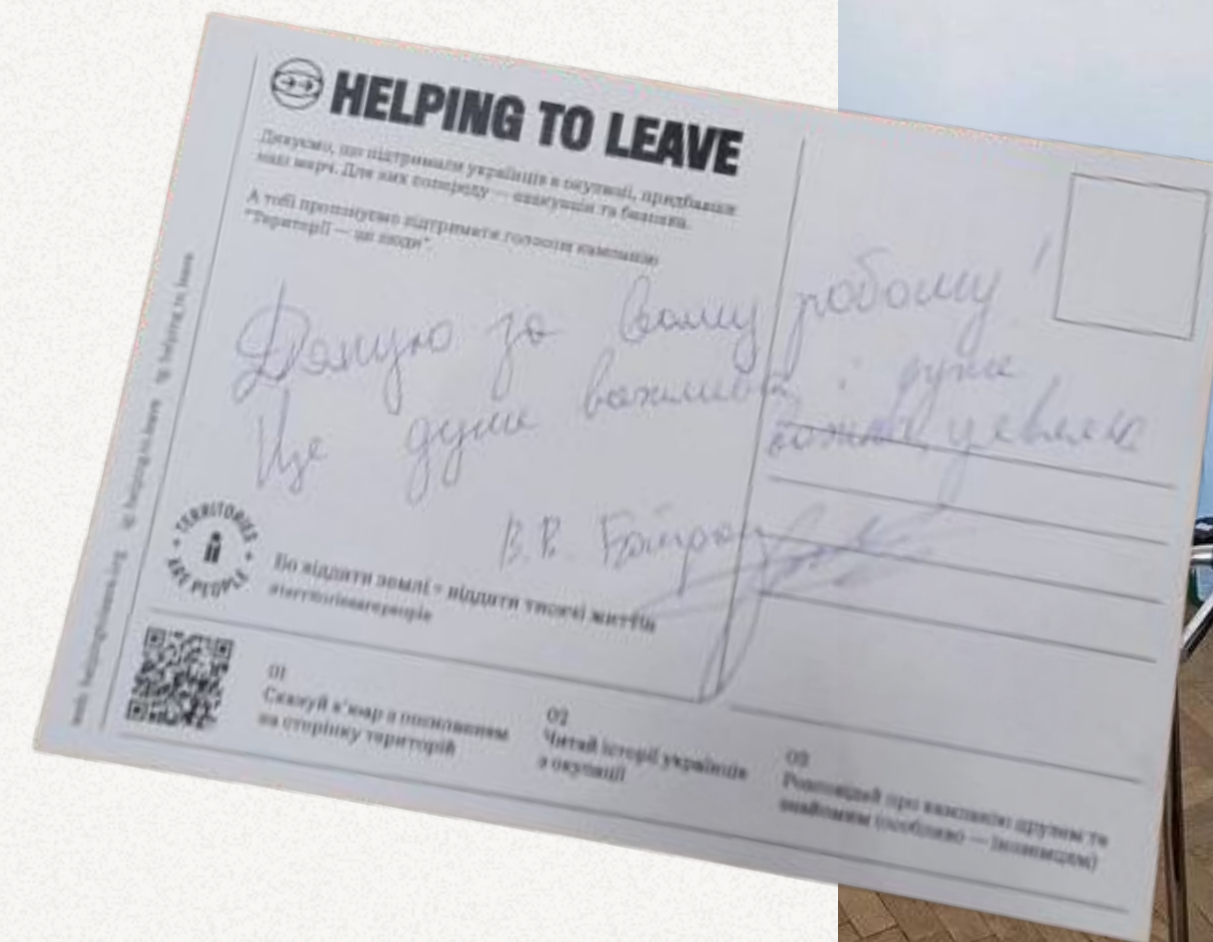 HELPING TO LEAVE
Дякуємо, що підтримали українців в окупації, придбавши
наш мерч. Для них попереду — евакуація та безпека.
А тобі пропонуємо підтримати голосом кампанію
"Території — це люди".
Дякую за вашу роботу!
Це дуже важливо і дуже
В.В.
TERRITORIES ARE PEOPLE
Бо віддати землі = віддати тисячі життів
#territoriesarepeople
01
Скануй к'юар з посиланням
на сторінку територій
02
Читай історії українців
з окупації
03
Розповідай про кампанію друзям та
знайомим (особливо — іноземцям)